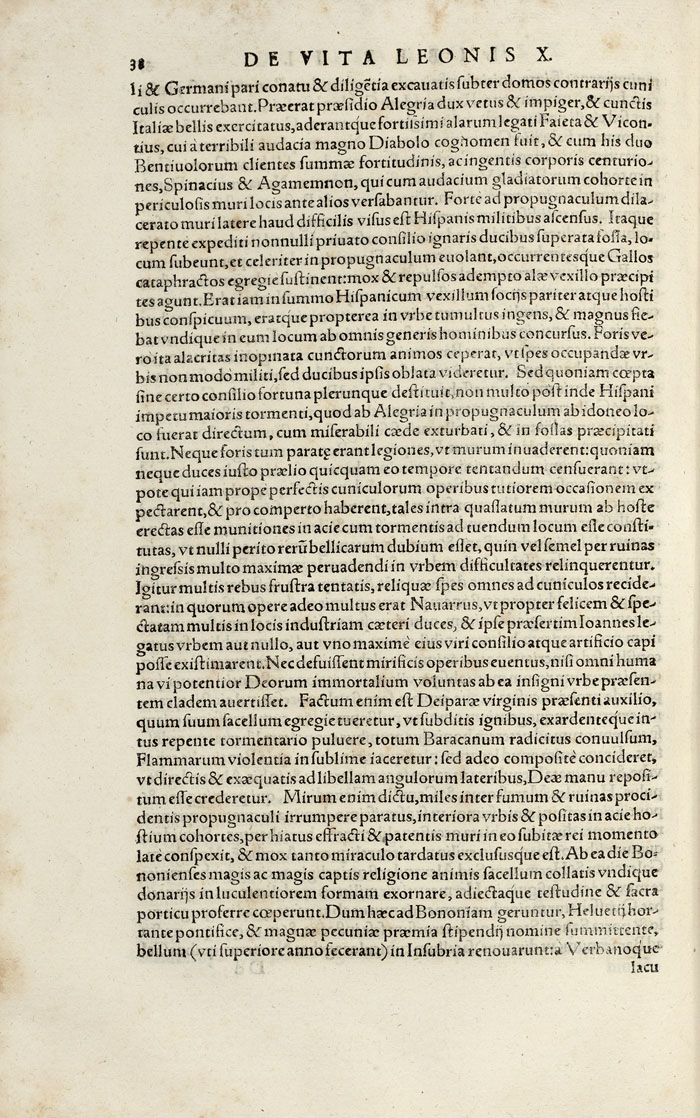 38 DE VITA LEONIS X.
li & Germani pari conatu & diligētia excauatis subter domos contrarijs cuni
culis occurrebant. Præerat præsidio Alegria dux vetus & impiger, & cunctis
Italiæ bellis exercitatus, aderantque fortissimi alarum legati Faieta & Vicon-
tius, cui a terribili audacia magno Diabolo cognomen fuit, & cum his duo
Bentiuolorum clientes summæ fortitudinis, ac ingentis corporis centurio-
nes, Spinacius & Agamemnon, qui cum audacium gladiatorum cohorte in
periculosis muri locis ante alios versabantur. Forte ad propugnaculum dila-
cerato muri latere haud difficilis visus est Hispanis militibus ascensus. Itaque
repente expediti nonnulli priuato consilio ignaris ducibus superata fossa, lo-
cum subeunt, et celeriter in propugnaculum euolant, occurrentesque Gallos
cataphractos egregie sustinent: mox & repulsos adempto alæ vexillo præcipi
tes agunt. Erat iam in summo Hispanicum vexillum socijs pariter atque hosti
bus conspicuum, eratque propterea in vrbe tumultus ingens, & magnus fie-
bat vndique in eum locum ab omnis generis hominibus concursus. Foris ve-
ro ita alacritas inopinata cunctorum animos ceperat, vt spes occupandæ vr-
bis non modo militi, sed ducibus ipsis oblata videretur. Sed quoniam cœpta
sine certo consilio fortuna plerunque destituit, non multo post inde Hispani
impetu maioris tormenti, quod ab Alegria in propugnaculum ab idoneo lo-
co fuerat directum, cum miserabili cæde exturbati, & in fossas præcipitati
sunt. Neque foris tum paratę erant legiones, vt murum inuaderent: quoniam
neque duces iusto prælio quicquam eo tempore tentandum censuerant: vt-
pote qui iam prope perfectis cuniculorum operibus tutiorem occasionem ex
pectarent, & pro comperto haberent, tales intra quassatum murum ab hoste
erectas esse munitiones in acie cum tormentis ad tuendum locum esse consti-
tutas, vt nulli perito rerū bellicarum dubium esset, quin vel semel per ruinas
ingressis multo maximæ peruadendi in vrbem difficultates relinquerentur.
Igitur multis rebus frustra tentatis, reliquæ spes omnes ad cuniculos recide-
rant: in quorum opere adeo multus erat Nauarrus, vt propter felicem & spe-
ctatam multis in locis industriam cæteri duces, & ipse præsertim Ioannes le-
gatus vrbem aut nullo, aut vno maximè eius viri consilio atque artificio capi
posse existimarent. Nec defuissent mirificis operibus euentus, nisi omni huma
na vi potentior Deorum immortalium voluntas ab ea insigni vrbe præsen-
tem cladem auertisset. Factum enim est Deiparæ virginis præsenti auxilio,
quum suum sacellum egregie tueretur, vt subditis ignibus, exardenteque in-
tus repente tormentario puluere, totum Baracanum radicitus conuulsum,
Flammarum violentia in sublime iaceretur: sed adeo compositè concideret,
vt directis & exæquatis ad libellam angulorum lateribus, Deæ manu reposi-
tum esse crederetur. Mirum enim dictu, miles inter fumum & ruinas proci-
dentis propugnaculi irrumpere paratus, interiora vrbis & positas in acie ho-
stium cohortes, per hiatus effracti & patentis muri in eo subitæ rei momento
latè conspexit, & mox tanto miraculo tardatus exclususque est. Ab ea die Bo-
nonienses magis ac magis captis religione animis sacellum collatis vndique
donarijs in luculentiorem formam exornare, adiectaque testudine & sacra
porticu proferre cœperunt. Dum hæc ad Bononiam geruntur, Heluetij hor-
tante pontifice, & magnæ pecuniæ præmia stipendij nomine summittente,
bellum (vti superiore anno fecerant) in Insubria renouarunt: a Verbanoque
lacu